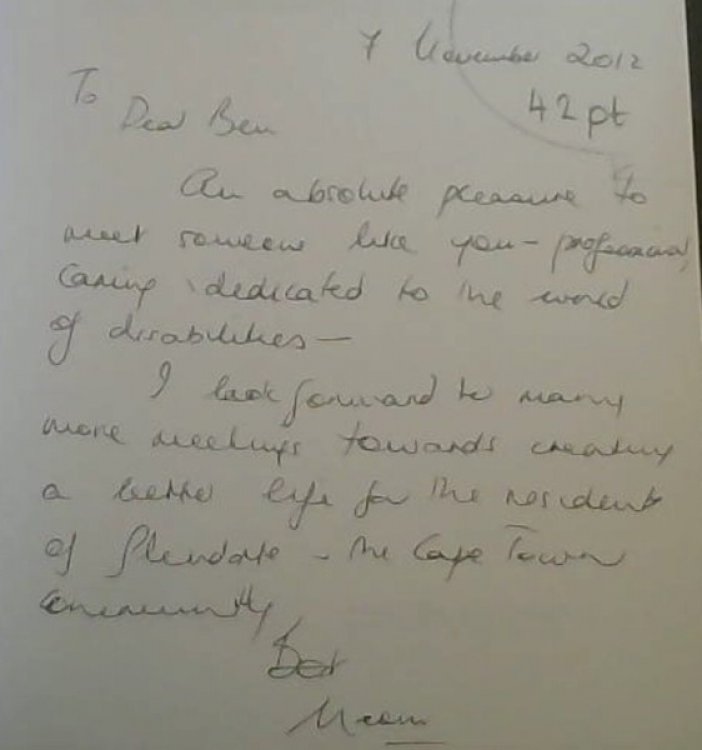 7 November 2012
42pt
To
Dear Ben
An absolute pleasure to
meet someone like you - professional,
caring, dedicated to the world
of disabilities —
I look forward to many
more meetings towards creating
a better life for the residents
of Glendale - the Cape Town
community
Best